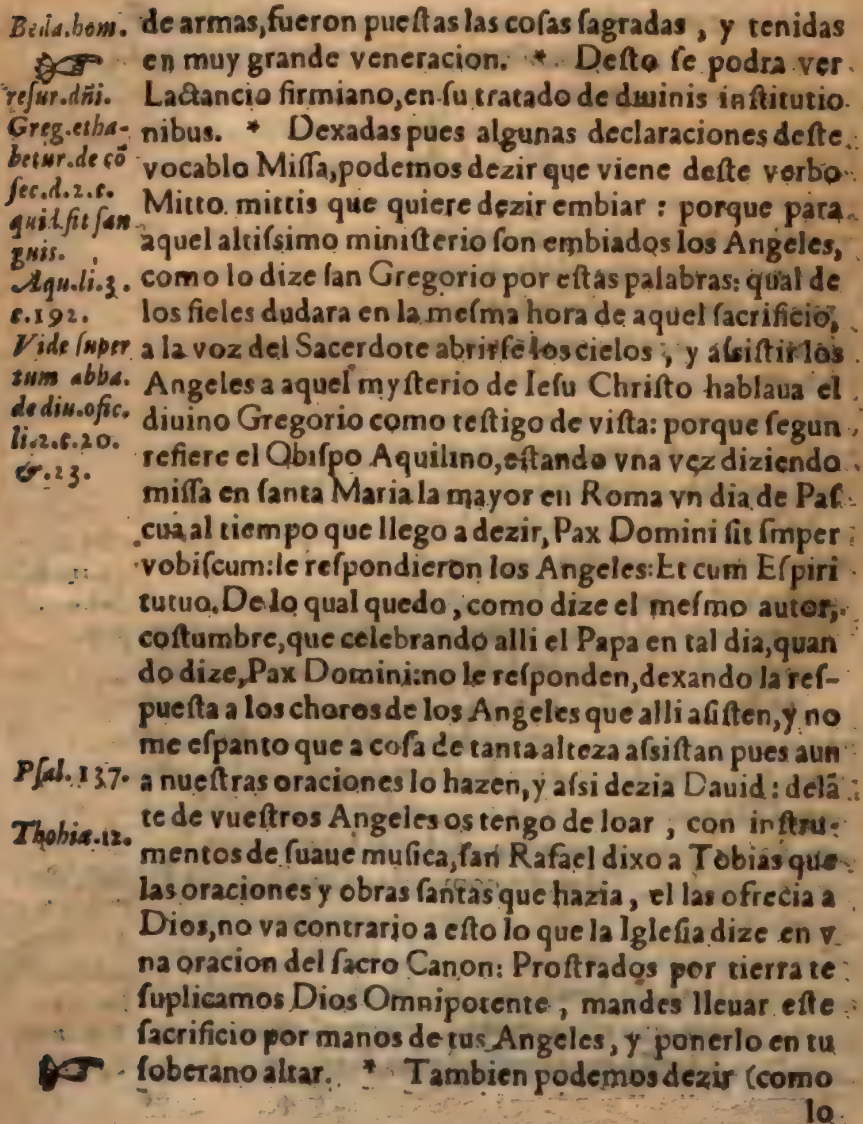 Beda.hom.
resur.dñi.
Greg.etha-
betur.de cō
sec.d.2.c.
quid.sit san
guis.
Aqu.li.3.
c.192.
Vide super
tum abba.
de diu.ofic.
li.2.c.20.
&.23.
Psal.137.
Thobiæ.12.
de armas,fueron pueſtas las coſas ſagradas , y tenidas
en muy grande veneracion. * Deſto ſe podra ver
Lactancio firmiano,en ſu tratado de diuinis inſtitutio
nibus. * Dexadas pues algunas declaraciones deſte
vocablo Miſſa,podemos dezir que viene deſte verbo
Mitto mittis que quiere dezir embiar : porque para
aquel altiſsimo miniſterio ſon embiados los Angeles,
como lo dize ſan Gregorio por eſtas palabras: qual de
los fieles dudara en la meſma hora de aquel ſacrificio,
a la voz del Sacerdote abrirſe los cielos , y aſsiſtir los
Angeles a aquel myſterio de Ieſu Chriſto hablaua el
diuino Gregorio como teſtigo de viſta: porque ſegun
refiere el Obiſpo Aquilino,eſtando vna vez diziendo
miſſa en ſanta Maria la mayor en Roma vn dia de Paſ-
cua al tiempo que llego a dezir, Pax Domini ſit ſmper
vobiſcum:le reſpondieron los Angeles:Et cum Eſpiri
tutuo.De lo qual quedo , como dize el meſmo autor,
coſtumbre,que celebrando alli el Papa en tal dia,quan
do dize,Pax Domini:no le reſponden,dexando la reſ-
pueſta a los choros de los Angeles que alli aſiſten,y no
me eſpanto que a coſa de tanta alteza aſsiſtan pues aun
a nueſtras oraciones lo hazen,y aſsi dezia Dauid : delã
te de vueſtros Angeles os tengo de loar , con inſtru-
mentos de ſuaue muſica,ſan Rafael dixo a Tobias que
las oraciones y obras ſantas que hazia , el las ofrecia a
Dios,no va contrario a eſto lo que la Igleſia dize en v
na oracion del ſacro Canon: Proſtrados por tierra te
ſuplicamos Dios Omnipotente , mandes lleuar eſte
ſacrificio por manos de tus Angeles , y ponerlo en tu
ſoberano altar. * Tambien podemos dezir (como
lo